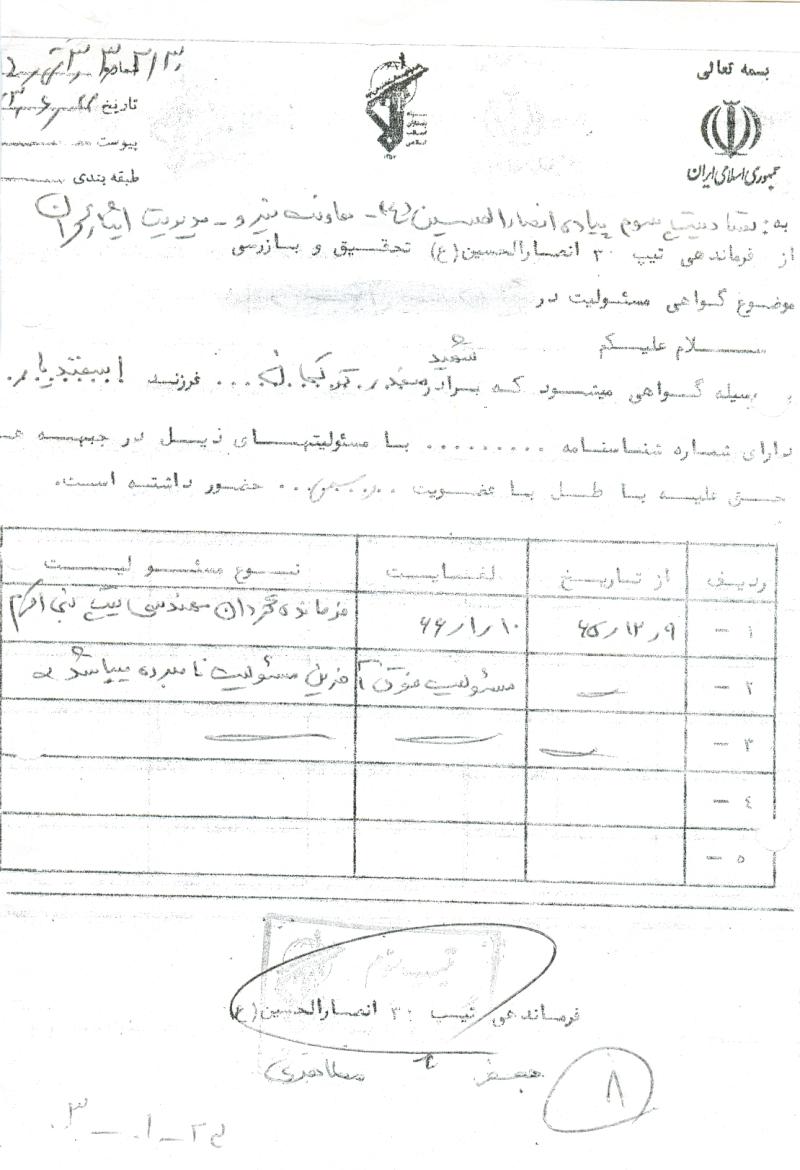 بسمه تعالی
جمهوری اسلامی ایران
شماره
تاریخ
پیوست
طبقه بندی
به: ستاد تیپ سوم پیاده انصارالحسین (ع) - معاونت نیرو - مدیریت
از فرماندهی تیپ ۳۰ انصارالحسین (ع) تحقیق و بازرسی
موضوع گواهی مسئولیت در
سلام علیکم
شهید
بسیله گواهی میشود که برادر ... فرزند اسفندیار
دارای شماره شناسنامه ......... با مسئولیتهای ذیل در جبهه
حق علیه باطل با عضویت ... رسمی ... حضور داشته است.
ردیف از تاریخ لغایت نوع مسئولیت
۱ - ۶۵/۱۲/۹ ۶۶/۱/۱۰ فرمانده گردان مهندسی تیپ نبی اکرم
۲ - مسئولیت فوق آخرین مسئولیت نامبرده میباشد
۳ -
۴ -
۵ -
فرماندهی تیپ ۳۰ انصارالحسین (ع)
جعفر مظاهری
۸